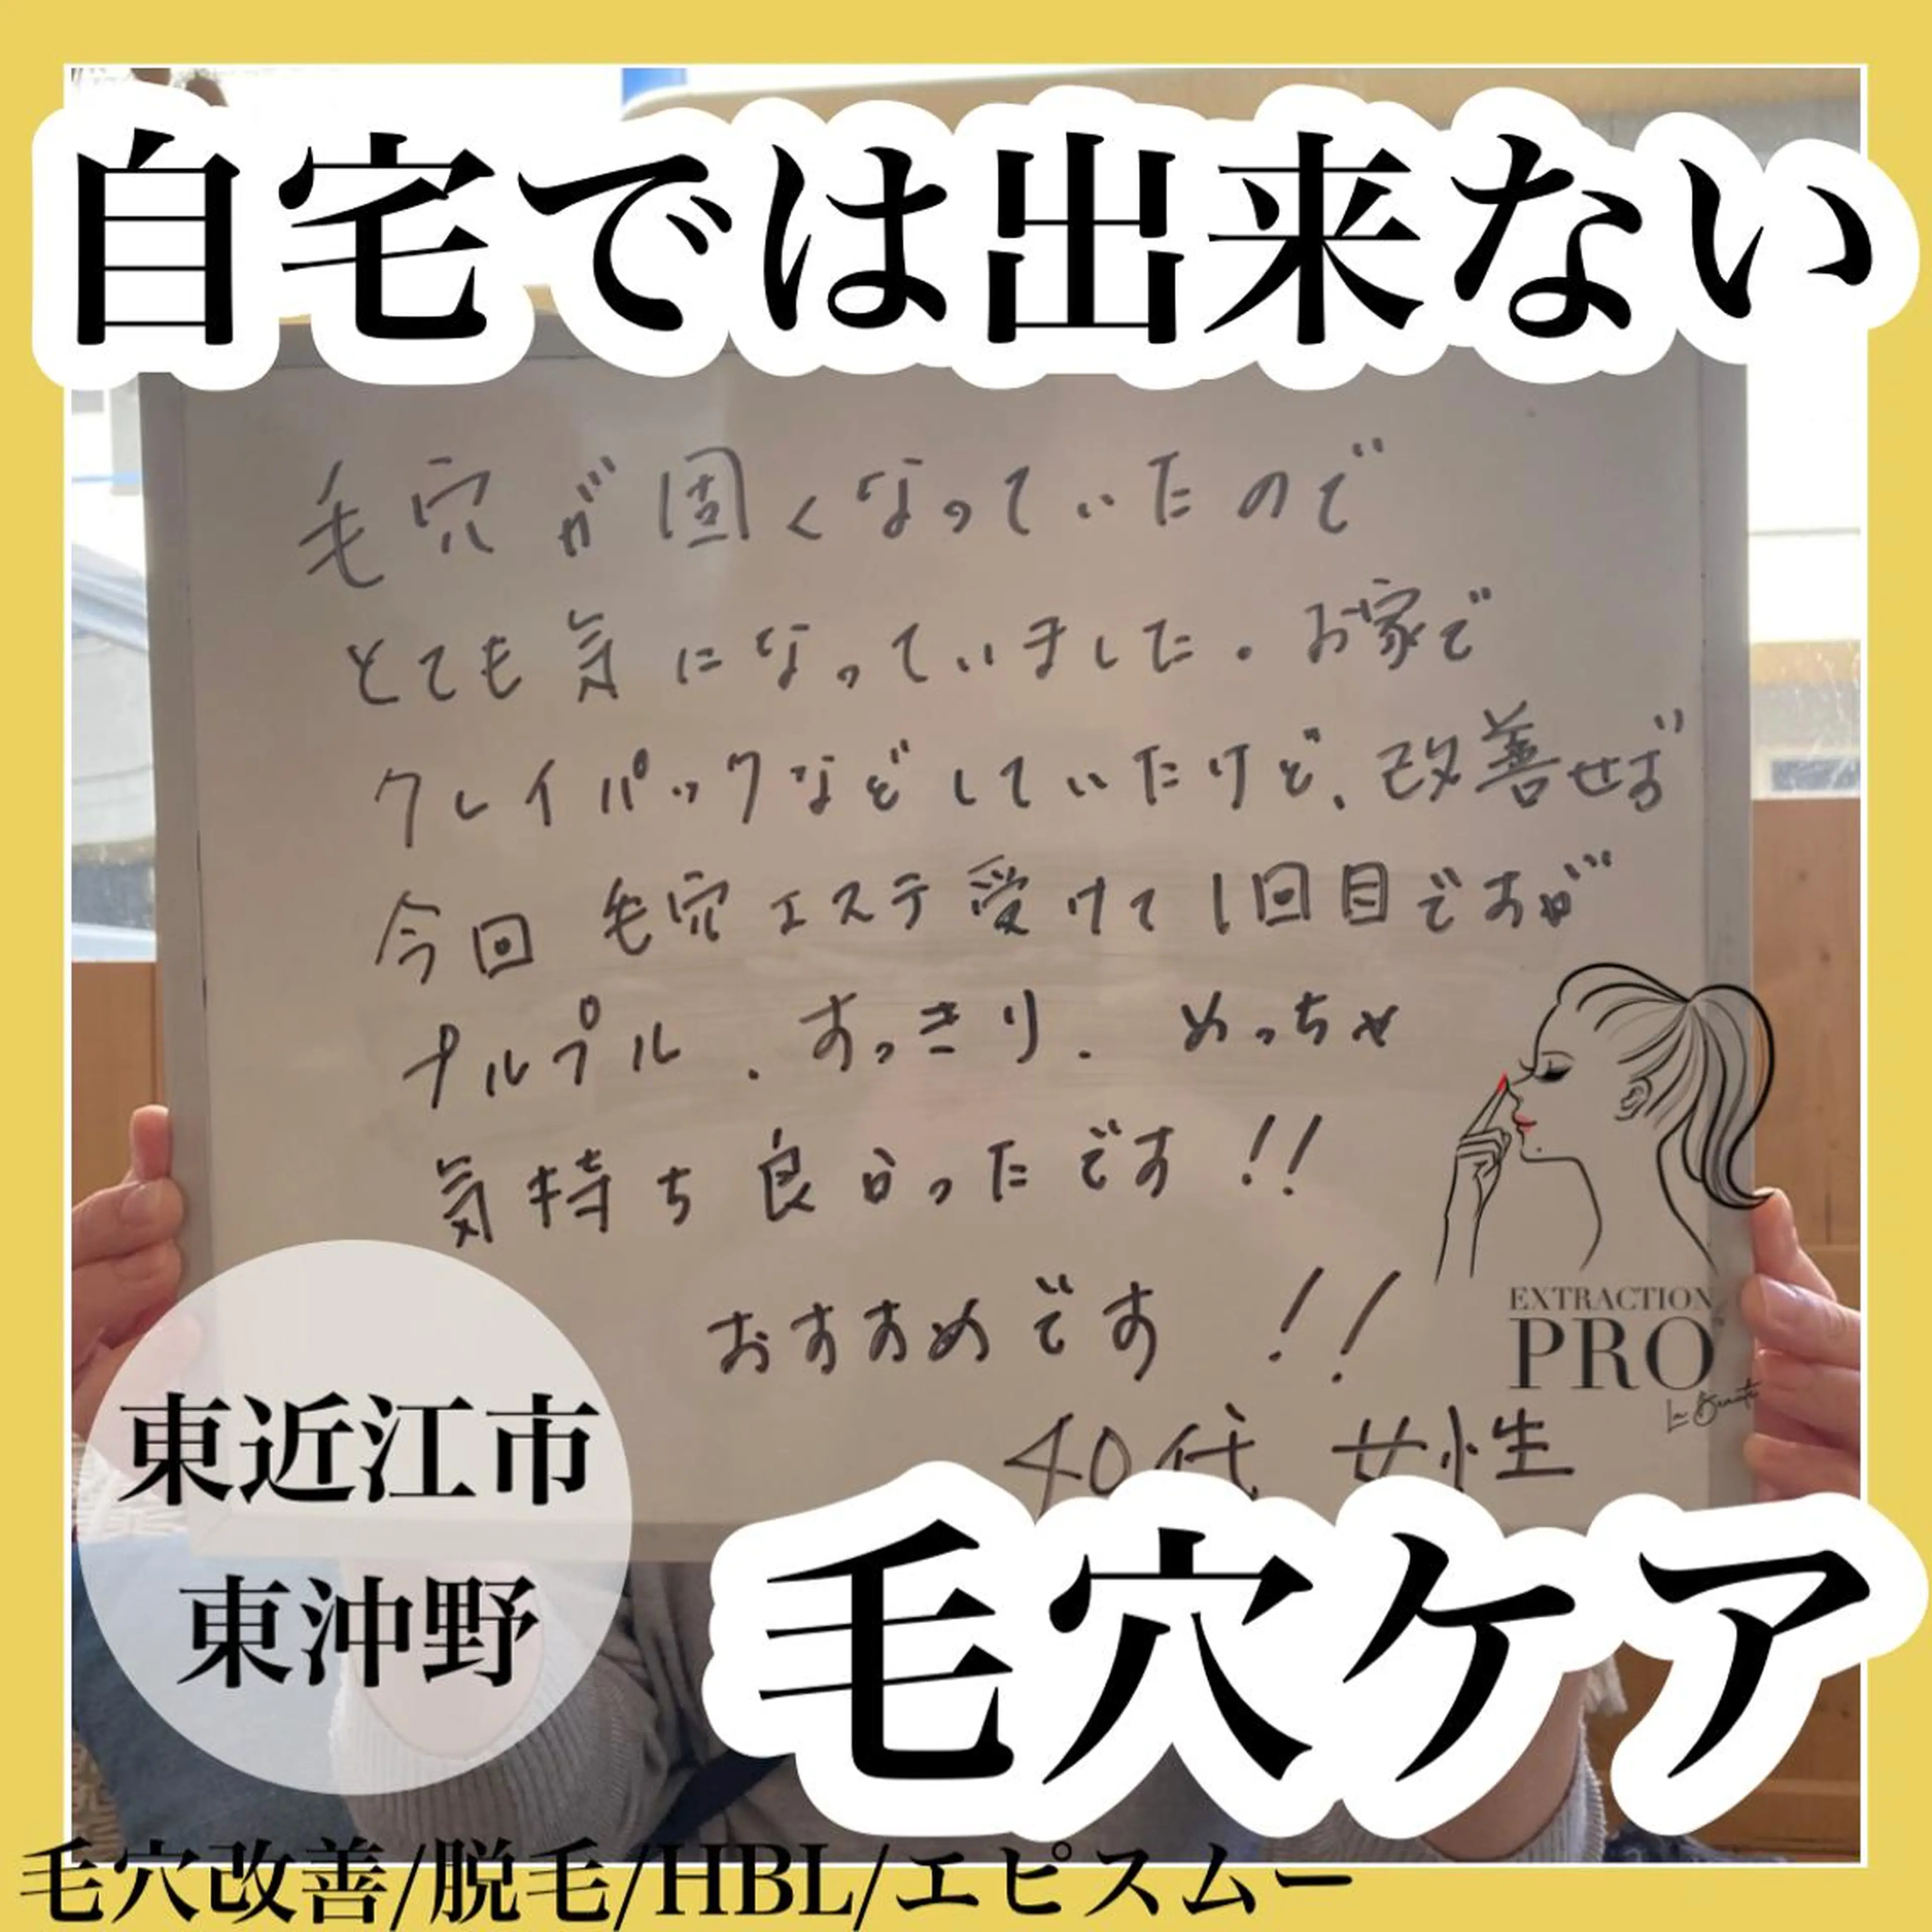 自宅では出来ない
毛穴が固くなっていたので
とても気になっていました。お家で
クレイパックなどしていたけど、改善せず
今回 毛穴エステ受けて1回目ですが
プルプル、すっきり、めっちゃ
気持ち良かったです!!
おすすめです!!
40代 女性
EXTRACTION
PRO
La Beauté
東近江市
東沖野
毛穴ケア
毛穴改善/脱毛/HBL/エピスムー